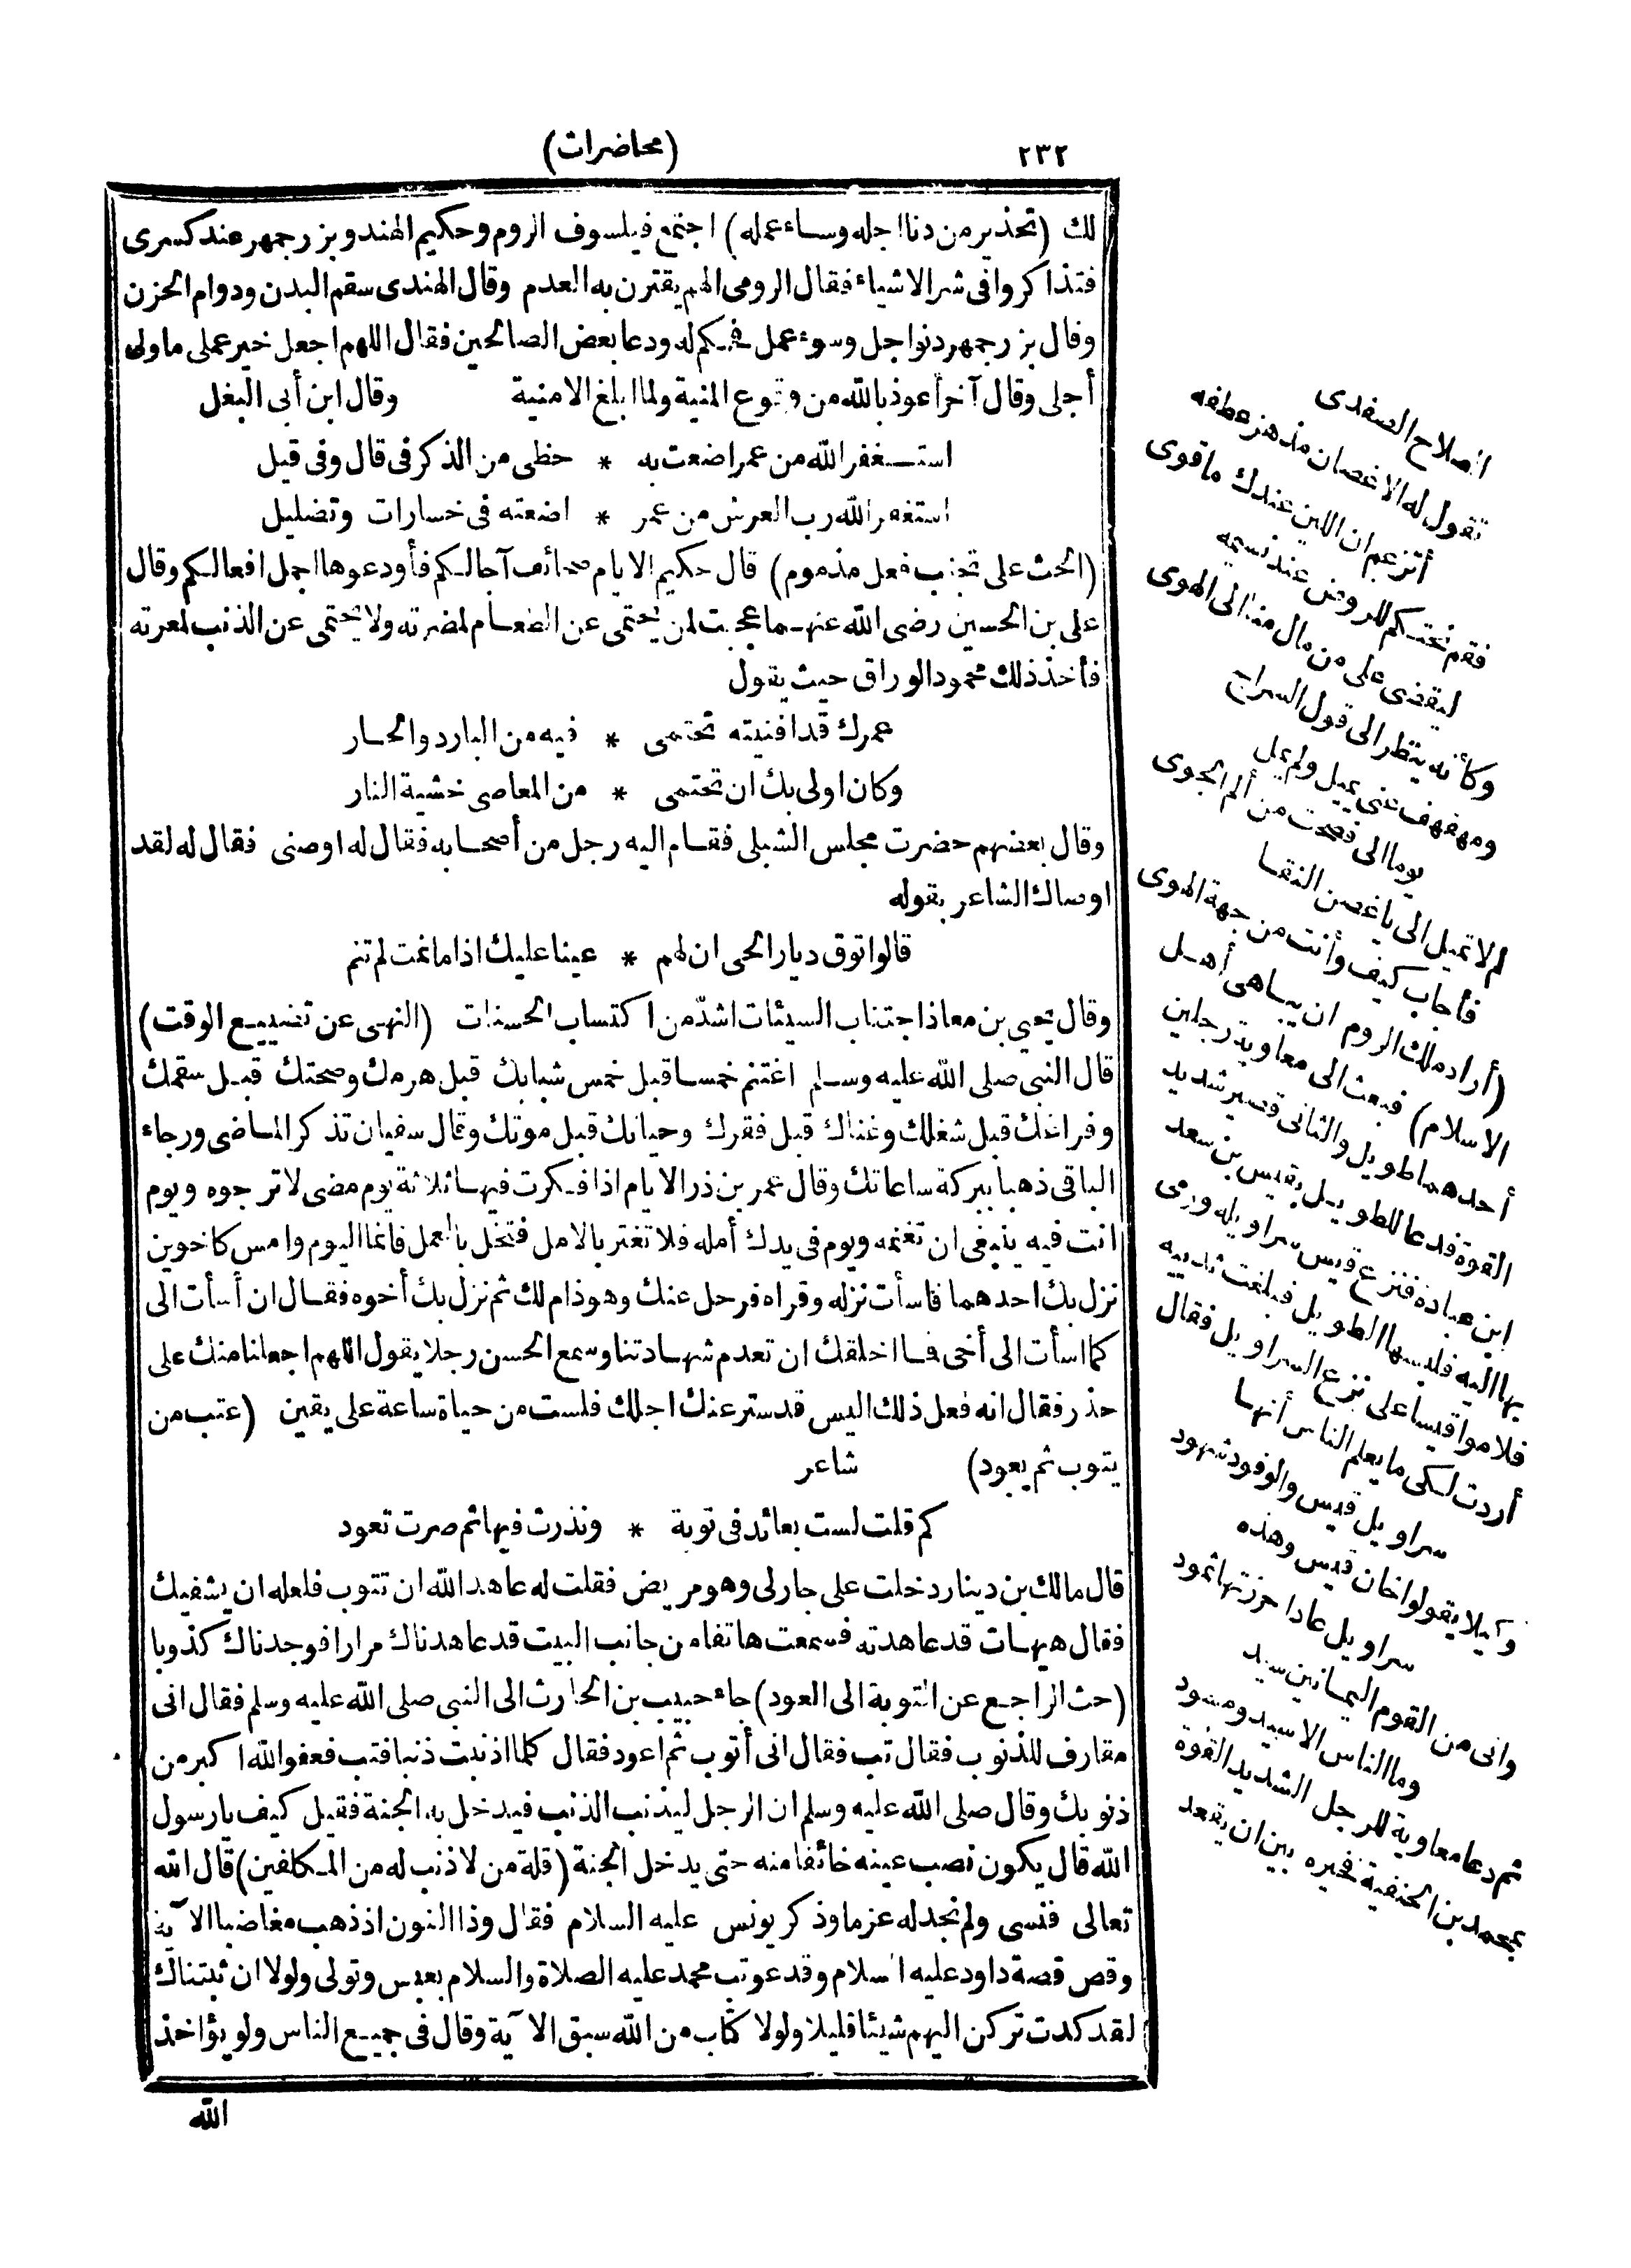 ٢٣٢
(محاضرات)
لك (تحذير من دنا اجله وساء عمله) اجتمع فيلسوف الروم وحكيم الهند وبزرجمهر عند كسرى
فتذاكروا فى شر الاشياء فقال الرومى الهم يقترن به العدم وقال الهندى سقم البدن ودوام الحزن
وقال بزرجمهر دنو اجل وسوء عمل فحكم له ودعا بعض الصالحين فقال اللهم اجعل خير عملى ما ولى
أجلى وقال آخر أعوذ بالله من وقوع المنية ولما ابلغ الامنية وقال ابن أبى البغل
استغفر الله من عمر اضعت به * حظى من الذكر فى قال وفى قيل
استغفر الله رب العرش من عمر * اضعته فى خسارات وتضليل
(الحث على تجنب فعل مذموم) قال حكيم الايام صحائف آجالكم فأودعوها اجمل افعالكم وقال
على بن الحسين رضى الله عنهما عجبت لمن يحتمى عن الطعام لمضرته ولا يحتمى عن الذنب لمعرته
فأخذ ذلك محمود الوراق حيث يقول
عمرك قد افنيته تحتمى * فيه من البارد والحار
وكان اولى بك ان تحتمى * من المعاصى خشية النار
وقال بعضهم حضرت مجلس الشبلى فقام اليه رجل من أصحابه فقال له اوصنى فقال له لقد
اوصاك الشاعر بقوله
قالوا توق ديار الحى ان لهم * عينا عليك اذا ما نمت لم تنم
وقال يحيى بن معاذ اجتناب السيئات اشدّ من اكتساب الحسنات (النهى عن تضييع الوقت)
قال النبى صلى الله عليه وسلم اغتنم خمسا قبل خمس شبابك قبل هرمك وصحتك قبل سقمك
وفراغك قبل شغلك وغناك قبل فقرك وحياتك قبل موتك وقال سفيان تذكر الماضى ورجاء
الباقى ذهبا ببركة ساعاتك وقال عمر بن ذر الايام اذا فكرت فيها ثلاثة يوم مضى لا ترجوه ويوم
انت فيه ينبغى ان تغتنمه ويوم فى يدك أمله فلا تغتر بالامل فتخل بالعمل فانما اليوم وامس كاخوين
نزل بك احدهما فاسأت نزله وقراه فرحل عنك وهو ذام لك ثم نزل بك أخوه فقال ان أسأت الى
كما اسأت الى أخى فما اخلقك ان تعدم شهادتنا وسمع الحسن رجلا يقول اللهم اجعلنا منك على
حذر فقال انه فعل ذلك اليس قد ستر عنك اجلك فلست من حياة ساعة على يقين (عتب من
يتوب ثم يعود) شاعر
كم قلت لست بعائد فى توبة * ونذرت فيها ثم صرت تعود
قال مالك بن دينار دخلت على جار لى وهو مريض فقلت له عاهد الله ان تتوب فلعله ان يشفيك
فقال هيهات قد عاهدته فسمعت هاتفا من جانب البيت قد عاهدناك مرارا فوجدناك كذوبا
(حث الراجع عن التوبة الى العود) جاء حبيب بن الحارث الى النبى صلى الله عليه وسلم فقال انى
مقارف للذنوب فقال تب فقال انى أتوب ثم اعود فقال كلما اذنبت ذنبا فتب فعفو الله اكبر من
ذنوبك وقال صلى الله عليه وسلم ان الرجل ليذنب الذنب فيدخل به الجنة فقيل كيف يا رسول
الله قال يكون نصب عينه خائفا منه حتى يدخل الجنة (قلة من لا ذنب له من المكلفين) قال الله
تعالى فنسى ولم نجد له عزما وذكر يونس عليه السلام فقال وذا النون اذ ذهب مغاضبا الآية
وقص قصة داود عليه السلام وقد عوتب محمد عليه الصلاة والسلام بعبس وتولى ولولا ان ثبتناك
لقد كدت تركن اليهم شيئا قليلا ولولا كتاب من الله سبق الآية وقال فى جميع الناس ولو يؤاخذ
الله
الصلاح الصفدى
تقول له الاغصان مذ هز عطفه
أتزعم ان اللين عندك ما قوى
فقم نحتكم للروض عند نسيمه
ليقضى على من مال منا الى الهوى
وكأنه ينظر الى قول السراج
ومهفهف عنى يميل ولم يمل
يوما الى فصحت من ألم الجوى
لم لا تميل الى يا غصن النقا
فأجاب كيف وأنت من جهة الهوى
(أراد ملك الروم ان يباهى أهل
الاسلام) فبعث الى معاوية رجلين
أحدهما طويل والثانى قصير شديد
القوة فدعا للطويل بقيس بن سعد
ابن عبادة فنزع قيس سراويله ورمى
بها اليه فلبسها الطويل فبلغت ثدييه
فلاموا قيسا على نزع السراويل فقال
أردت لكى ما يعلم الناس أنها
سراويل قيس والوفود شهود
وكيلا يقولوا خان قيس وهذه
سراويل عاد احرزتها ثمود
وانى من القوم اليمانين سيد
وما الناس الا سيد ومسود
ثم دعا معاوية للرجل الشديد القوة
بمحمد بن الحنفية فخيره بين ان يقعد